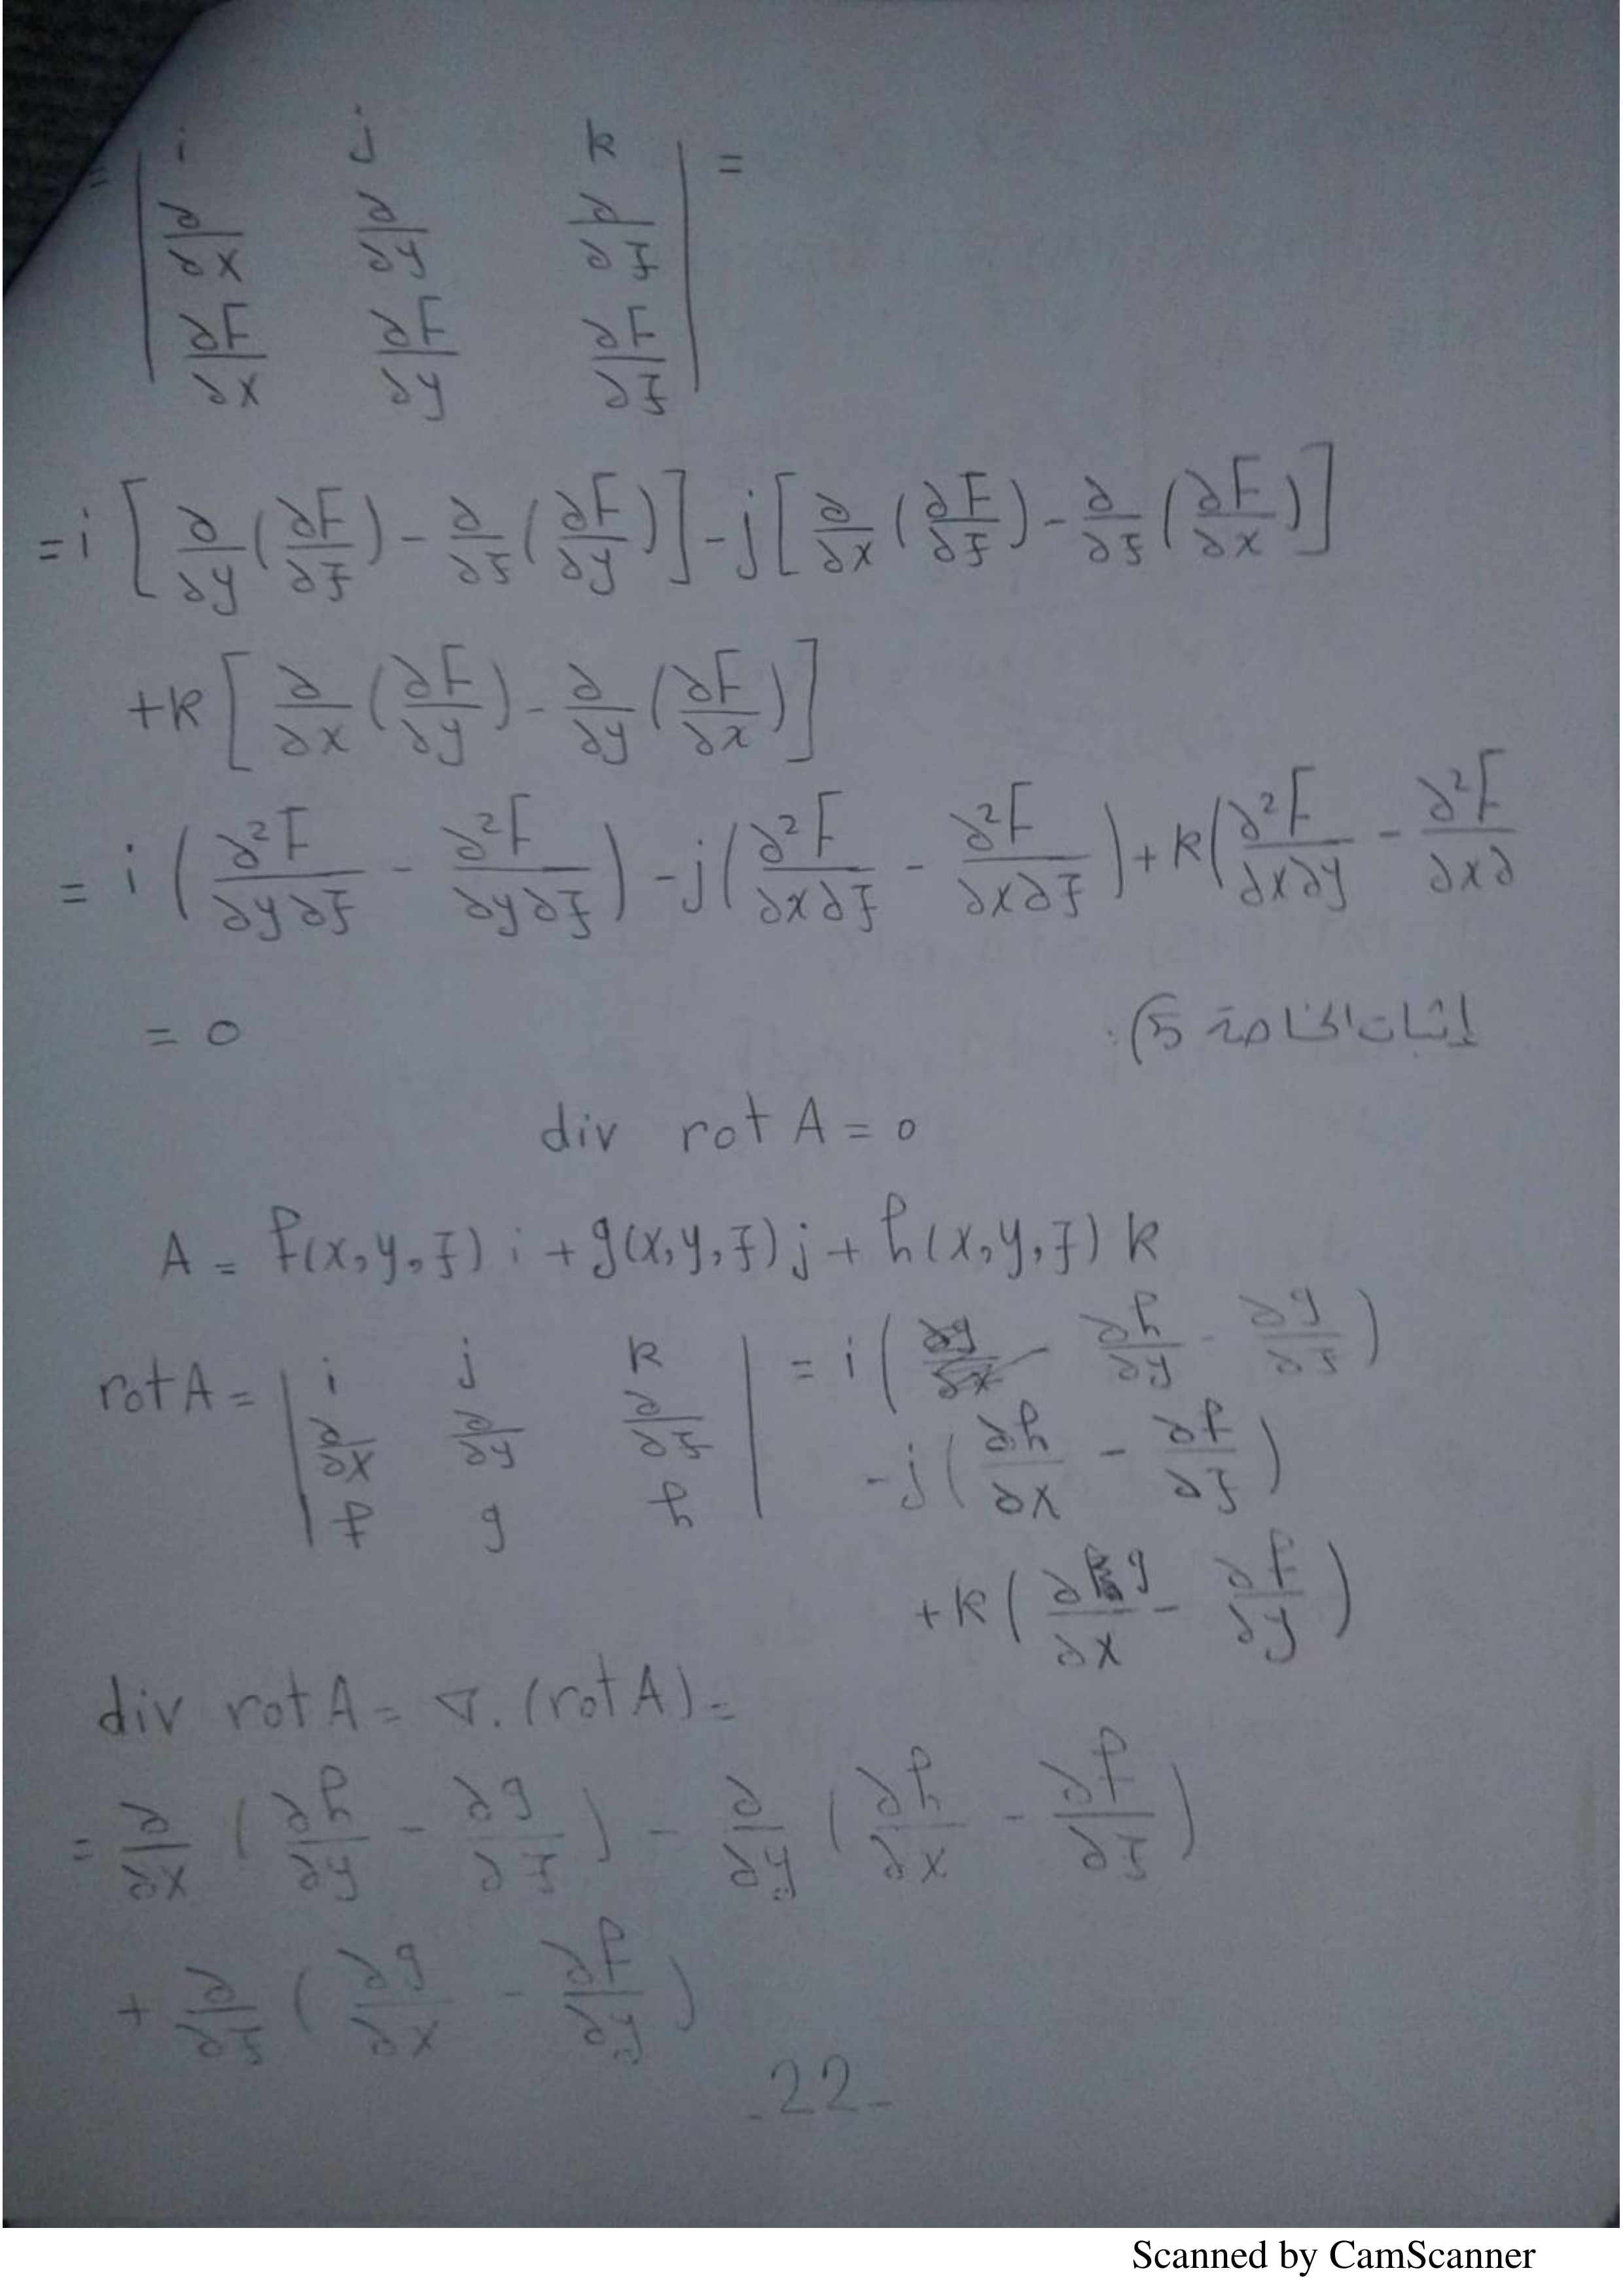 = | i j k | =
| ∂/∂x ∂/∂y ∂/∂z |
| ∂F/∂x ∂F/∂y ∂F/∂z |
= i [ ∂/∂y (∂F/∂z) - ∂/∂z (∂F/∂y) ] - j [ ∂/∂x (∂F/∂z) - ∂/∂z (∂F/∂x) ]
+ k [ ∂/∂x (∂F/∂y) - ∂/∂y (∂F/∂x) ]
= i ( ∂²F/∂y∂z - ∂²F/∂y∂z ) - j ( ∂²F/∂x∂z - ∂²F/∂x∂z ) + k ( ∂²F/∂x∂y - ∂²F/∂x∂
= 0
إثبات الخاصة 5):
div rot A = 0
A = f(x,y,z) i + g(x,y,z) j + h(x,y,z) k
rot A = | i j k | = i ( ∂h/∂y - ∂g/∂z )
| ∂/∂x ∂/∂y ∂/∂z | - j ( ∂h/∂x - ∂f/∂z )
| f g h |
+ k ( ∂g/∂x - ∂f/∂y )
div rot A = ∇. (rot A) =
= ∂/∂x ( ∂h/∂y - ∂g/∂z ) - ∂/∂y ( ∂h/∂x - ∂f/∂z )
+ ∂/∂z ( ∂g/∂x - ∂f/∂y )
-22-
Scanned by CamScanner